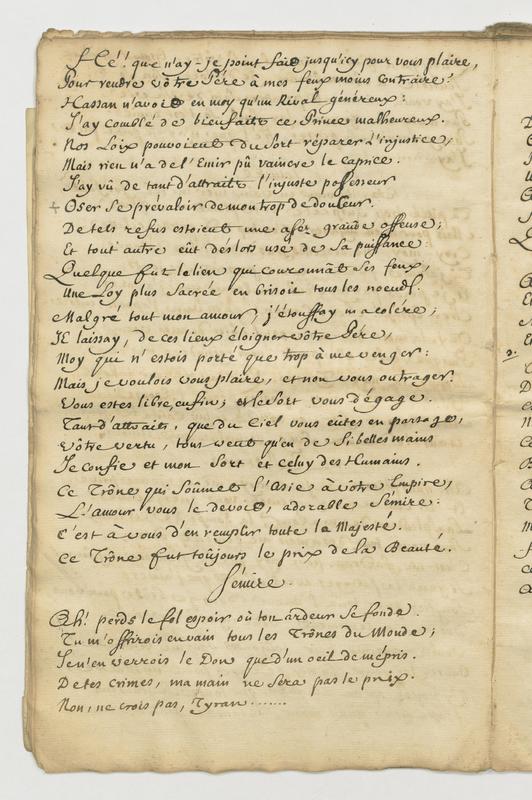 Hé! que n'ay-je point fait jusqu'icy pour vous plaire,
Pour rendre vôtre Pére à mes feux moins contraire?
Hassan n'avoit en moy qu'un Rival généreux:
J'ay comblé de bienfaits ce Prince malheureux.
Nos Loix pouvoient du Sort réparer l'injustice,
Mais rien n'a de l'Emir pû vaincre le caprice.
J'ay vû de tant d'attraits l'injuste possesseur
+ Oser se prévaloir de mon trop de douleur.
De tels refus estoient une assez grande offense;
Et tout autre eût deslors usé de sa puissance.
Quelque fut le lien qui couronnât ses feux,
Une Loy plus Sacrée en brisoit tous les noeuds.
Malgré tout mon amour, j'étouffay ma colére;
Je laissay, de ces lieux éloigner vôtre Pére,
Moy qui n'estois porté que trop à me venger:
Mais je voulois vous plaire, et non vous outrager.
Vous estes libre, enfin; et le Sort vous dégage.
Tant d'attraits, que du Ciel vous eûtes en partage,
Vôtre vertu, tout veut qu'en de Si belles mains
Je confie et mon Sort et celuy des Humains.
Ce Trône qui Soûmet l'Asie à vôtre Empire,
L'amour vous le devoit, adorable Sémire:
C'est à vous d'en remplir toute la Majesté.
Ce Trône fut toûjours le prix de la Beauté.
Sémire.
Ah! perds le fol espoir où ton ardeur se fonde.
Tu m'offrirois en vain tous les Trônes du Monde;
Je n'en verrois le Don que d'un oeil de mépris.
De tes crimes, ma main ne sera pas le prix.
Non, ne crois pas, Tyran.......